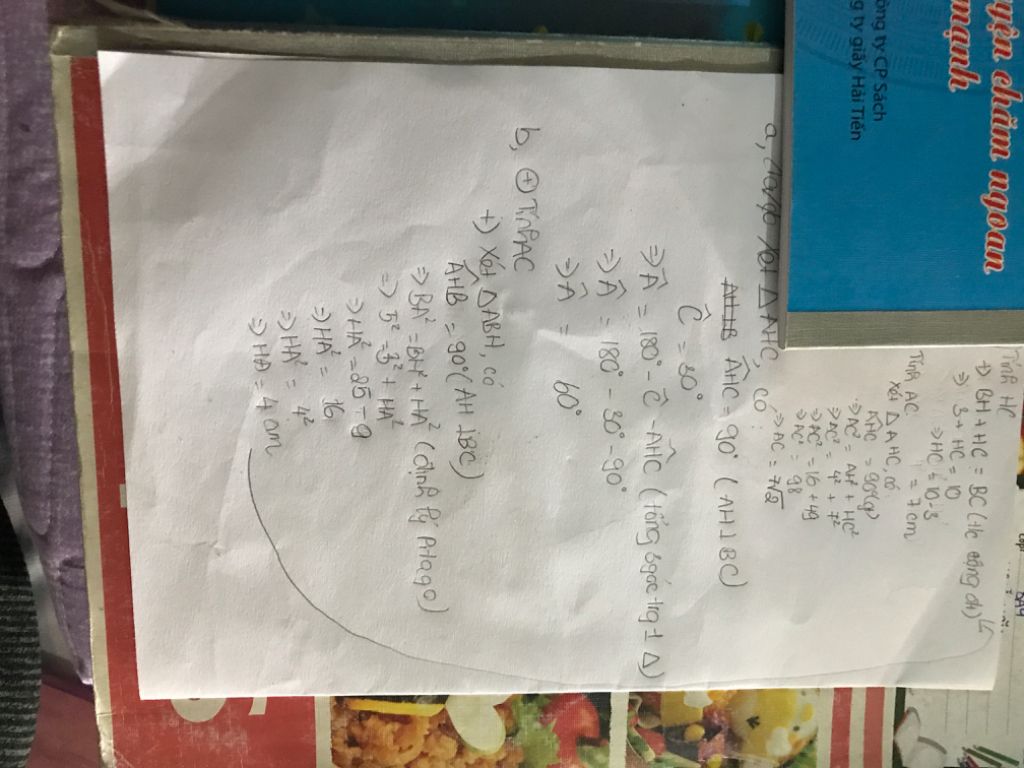 yện chăm ngoan
mạnh
ông ty CP Sách
g ty giấy Hải Tiến
a, Xét △ AHC, có
AHC = 90° (AH ⊥ BC)
Ĉ = 30°
=> Â = 180° - Ĉ - AHC (tổng 3 góc trg 1 △)
=> Â = 180° - 30° - 90°
=> Â = 60°
b, + Tính AC
+) Xét △ ABH, có
AHB = 90° (AH ⊥ BC)
=> BA² = BH² + HA² (định lý Pitago)
=> 5² = 3² + HA²
=> HA² = 25 - 9
=> HA² = 16
=> HA² = 4²
=> HA = 4 cm
Tính HC
+) BH + HC = BC (t/c cộng đt)
=> 3 + HC = 10
=> HC = 10 - 3
= 7 cm
Tính AC
Xét △ AHC, có
AHC = 90° (g)
=> AC² = AH + HC²
=> AC² = 4² + 7²
=> AC² = 16 + 49
=> AC² = 98
=> AC = 7√2